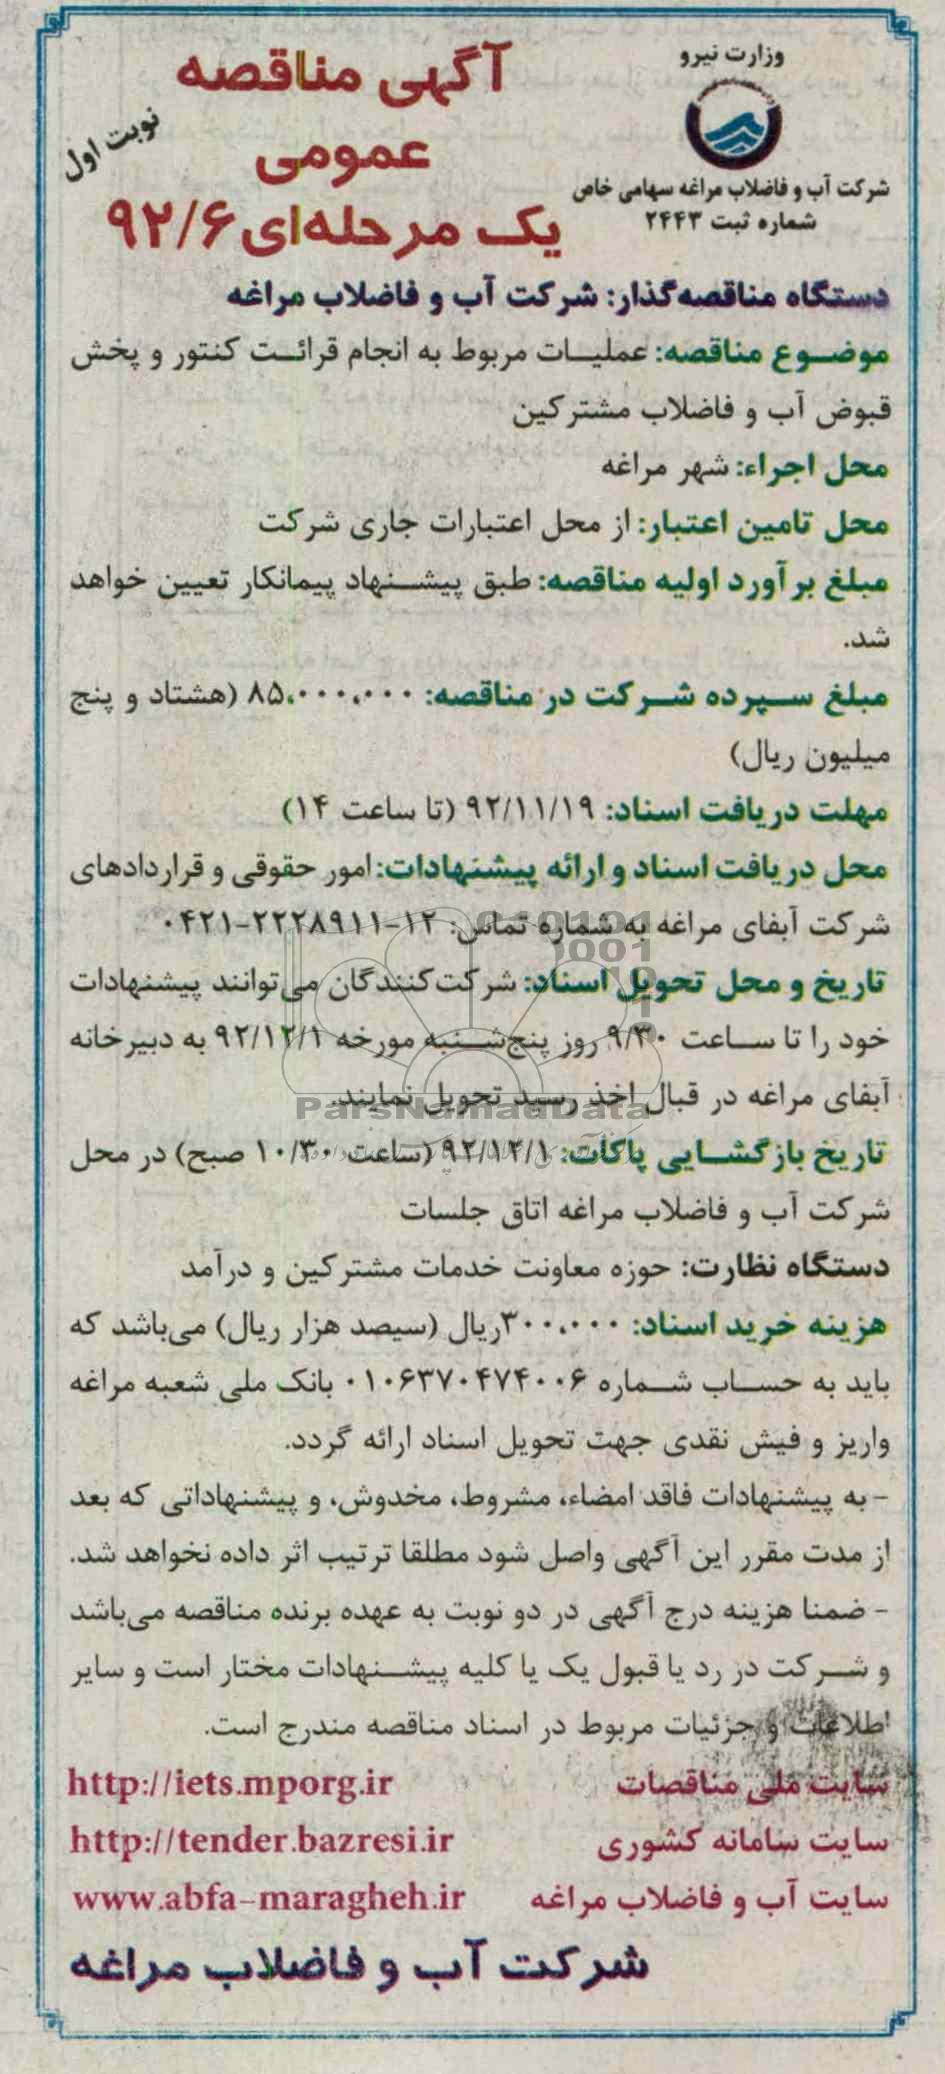 وزارت نیرو
شرکت آب و فاضلاب مراغه سهامی خاص
شماره ثبت ۲۴۴۳
آگهی مناقصه
عمومی
یک مرحله‌ای ۹۲/۶
نوبت اول
دستگاه مناقصه‌گذار: شرکت آب و فاضلاب مراغه
موضوع مناقصه: عملیات مربوط به انجام قرائت کنتور و پخش
قبوض آب و فاضلاب مشترکین
محل اجراء: شهر مراغه
محل تامین اعتبار: از محل اعتبارات جاری شرکت
مبلغ برآورد اولیه مناقصه: طبق پیشنهاد پیمانکار تعیین خواهد
شد.
مبلغ سپرده شرکت در مناقصه: ۸۵،۰۰۰،۰۰۰ (هشتاد و پنج
میلیون ریال)
مهلت دریافت اسناد: ۹۲/۱۱/۱۹ (تا ساعت ۱۴)
محل دریافت اسناد و ارائه پیشنهادات: امور حقوقی و قراردادهای
شرکت آبفای مراغه به شماره تماس: ۱۲-۲۲۲۸۹۱۱-۰۴۲۱
تاریخ و محل تحویل اسناد: شرکت‌کنندگان می‌توانند پیشنهادات
خود را تا ساعت ۹/۳۰ روز پنج‌شنبه مورخه ۹۲/۱۲/۱ به دبیرخانه
آبفای مراغه در قبال اخذ رسید تحویل نمایند.
ParsNamadData
تاریخ بازگشایی پاکات: ۹۲/۱۲/۱ (ساعت ۱۰/۳۰ صبح) در محل
شرکت آب و فاضلاب مراغه اتاق جلسات
دستگاه نظارت: حوزه معاونت خدمات مشترکین و درآمد
هزینه خرید اسناد: ۳۰۰،۰۰۰ریال (سیصد هزار ریال) می‌باشد که
باید به حساب شماره ۰۱۰۶۳۷۰۴۷۴۰۰۶ بانک ملی شعبه مراغه
واریز و فیش نقدی جهت تحویل اسناد ارائه گردد.
- به پیشنهادات فاقد امضاء، مشروط، مخدوش، و پیشنهاداتی که بعد
از مدت مقرر این آگهی واصل شود مطلقا ترتیب اثر داده نخواهد شد.
- ضمنا هزینه درج آگهی در دو نوبت به عهده برنده مناقصه می‌باشد
و شرکت در رد یا قبول یک یا کلیه پیشنهادات مختار است و سایر
اطلاعات و جزئیات مربوط در اسناد مناقصه مندرج است.
سایت ملی مناقصات http://iets.mporg.ir
سایت سامانه کشوری http://tender.bazresi.ir
سایت آب و فاضلاب مراغه www.abfa-maragheh.ir
شرکت آب و فاضلاب مراغه